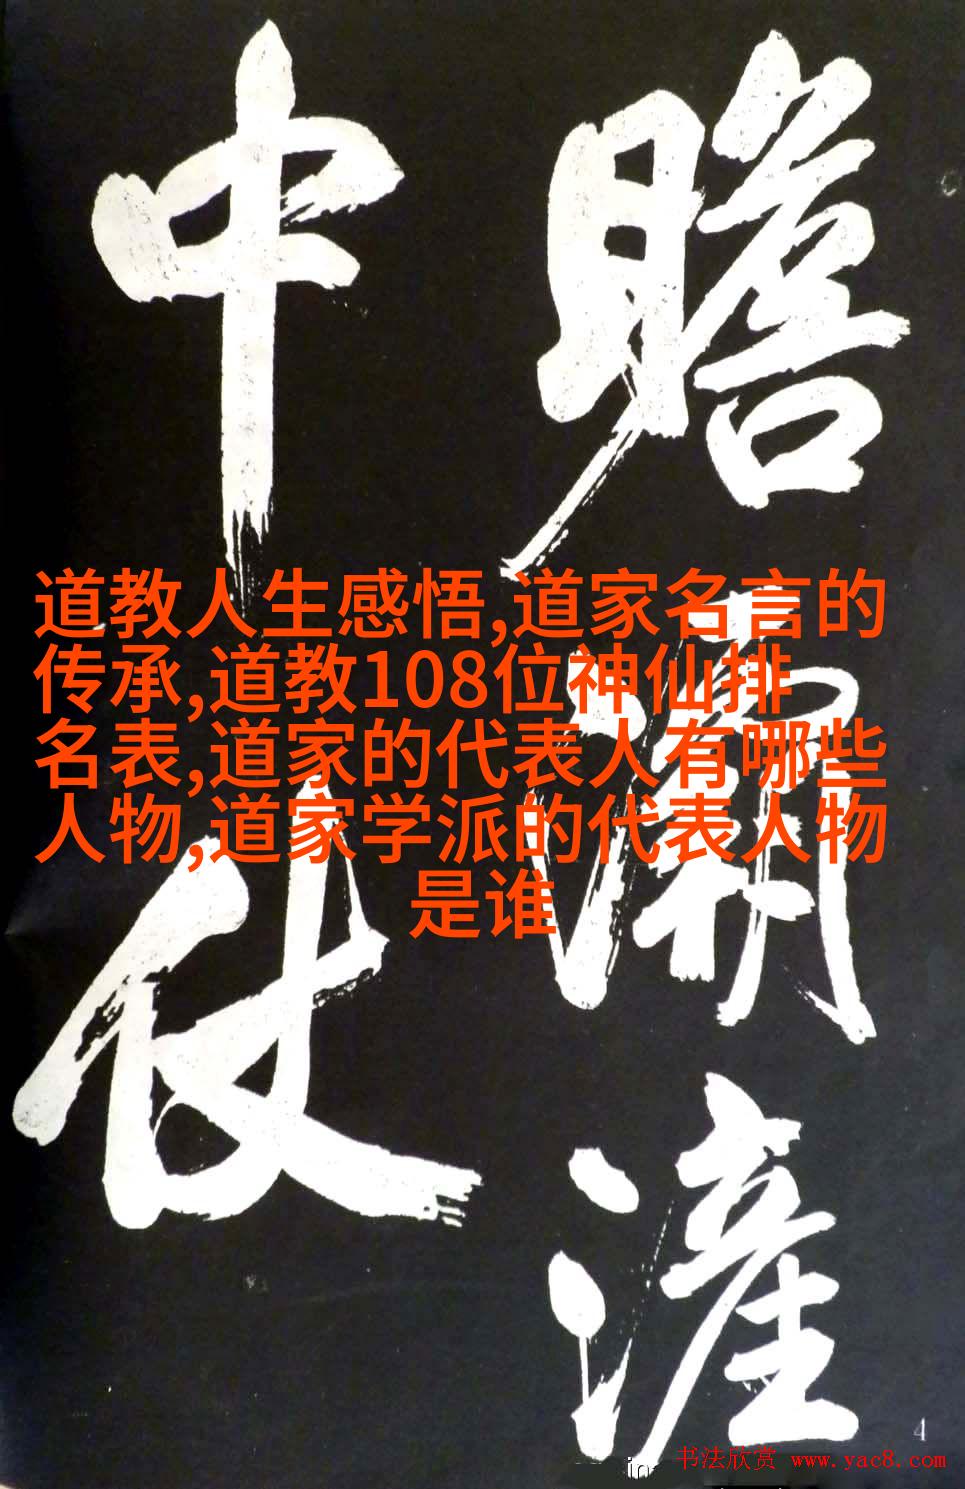 瞻
中仗
道教人生感悟,道家名言的
传承,道教108位神仙排
名表,道家的代表人有哪些
人物,道家学派的代表人物
是谁
4
书法欣赏 www.yac8.com